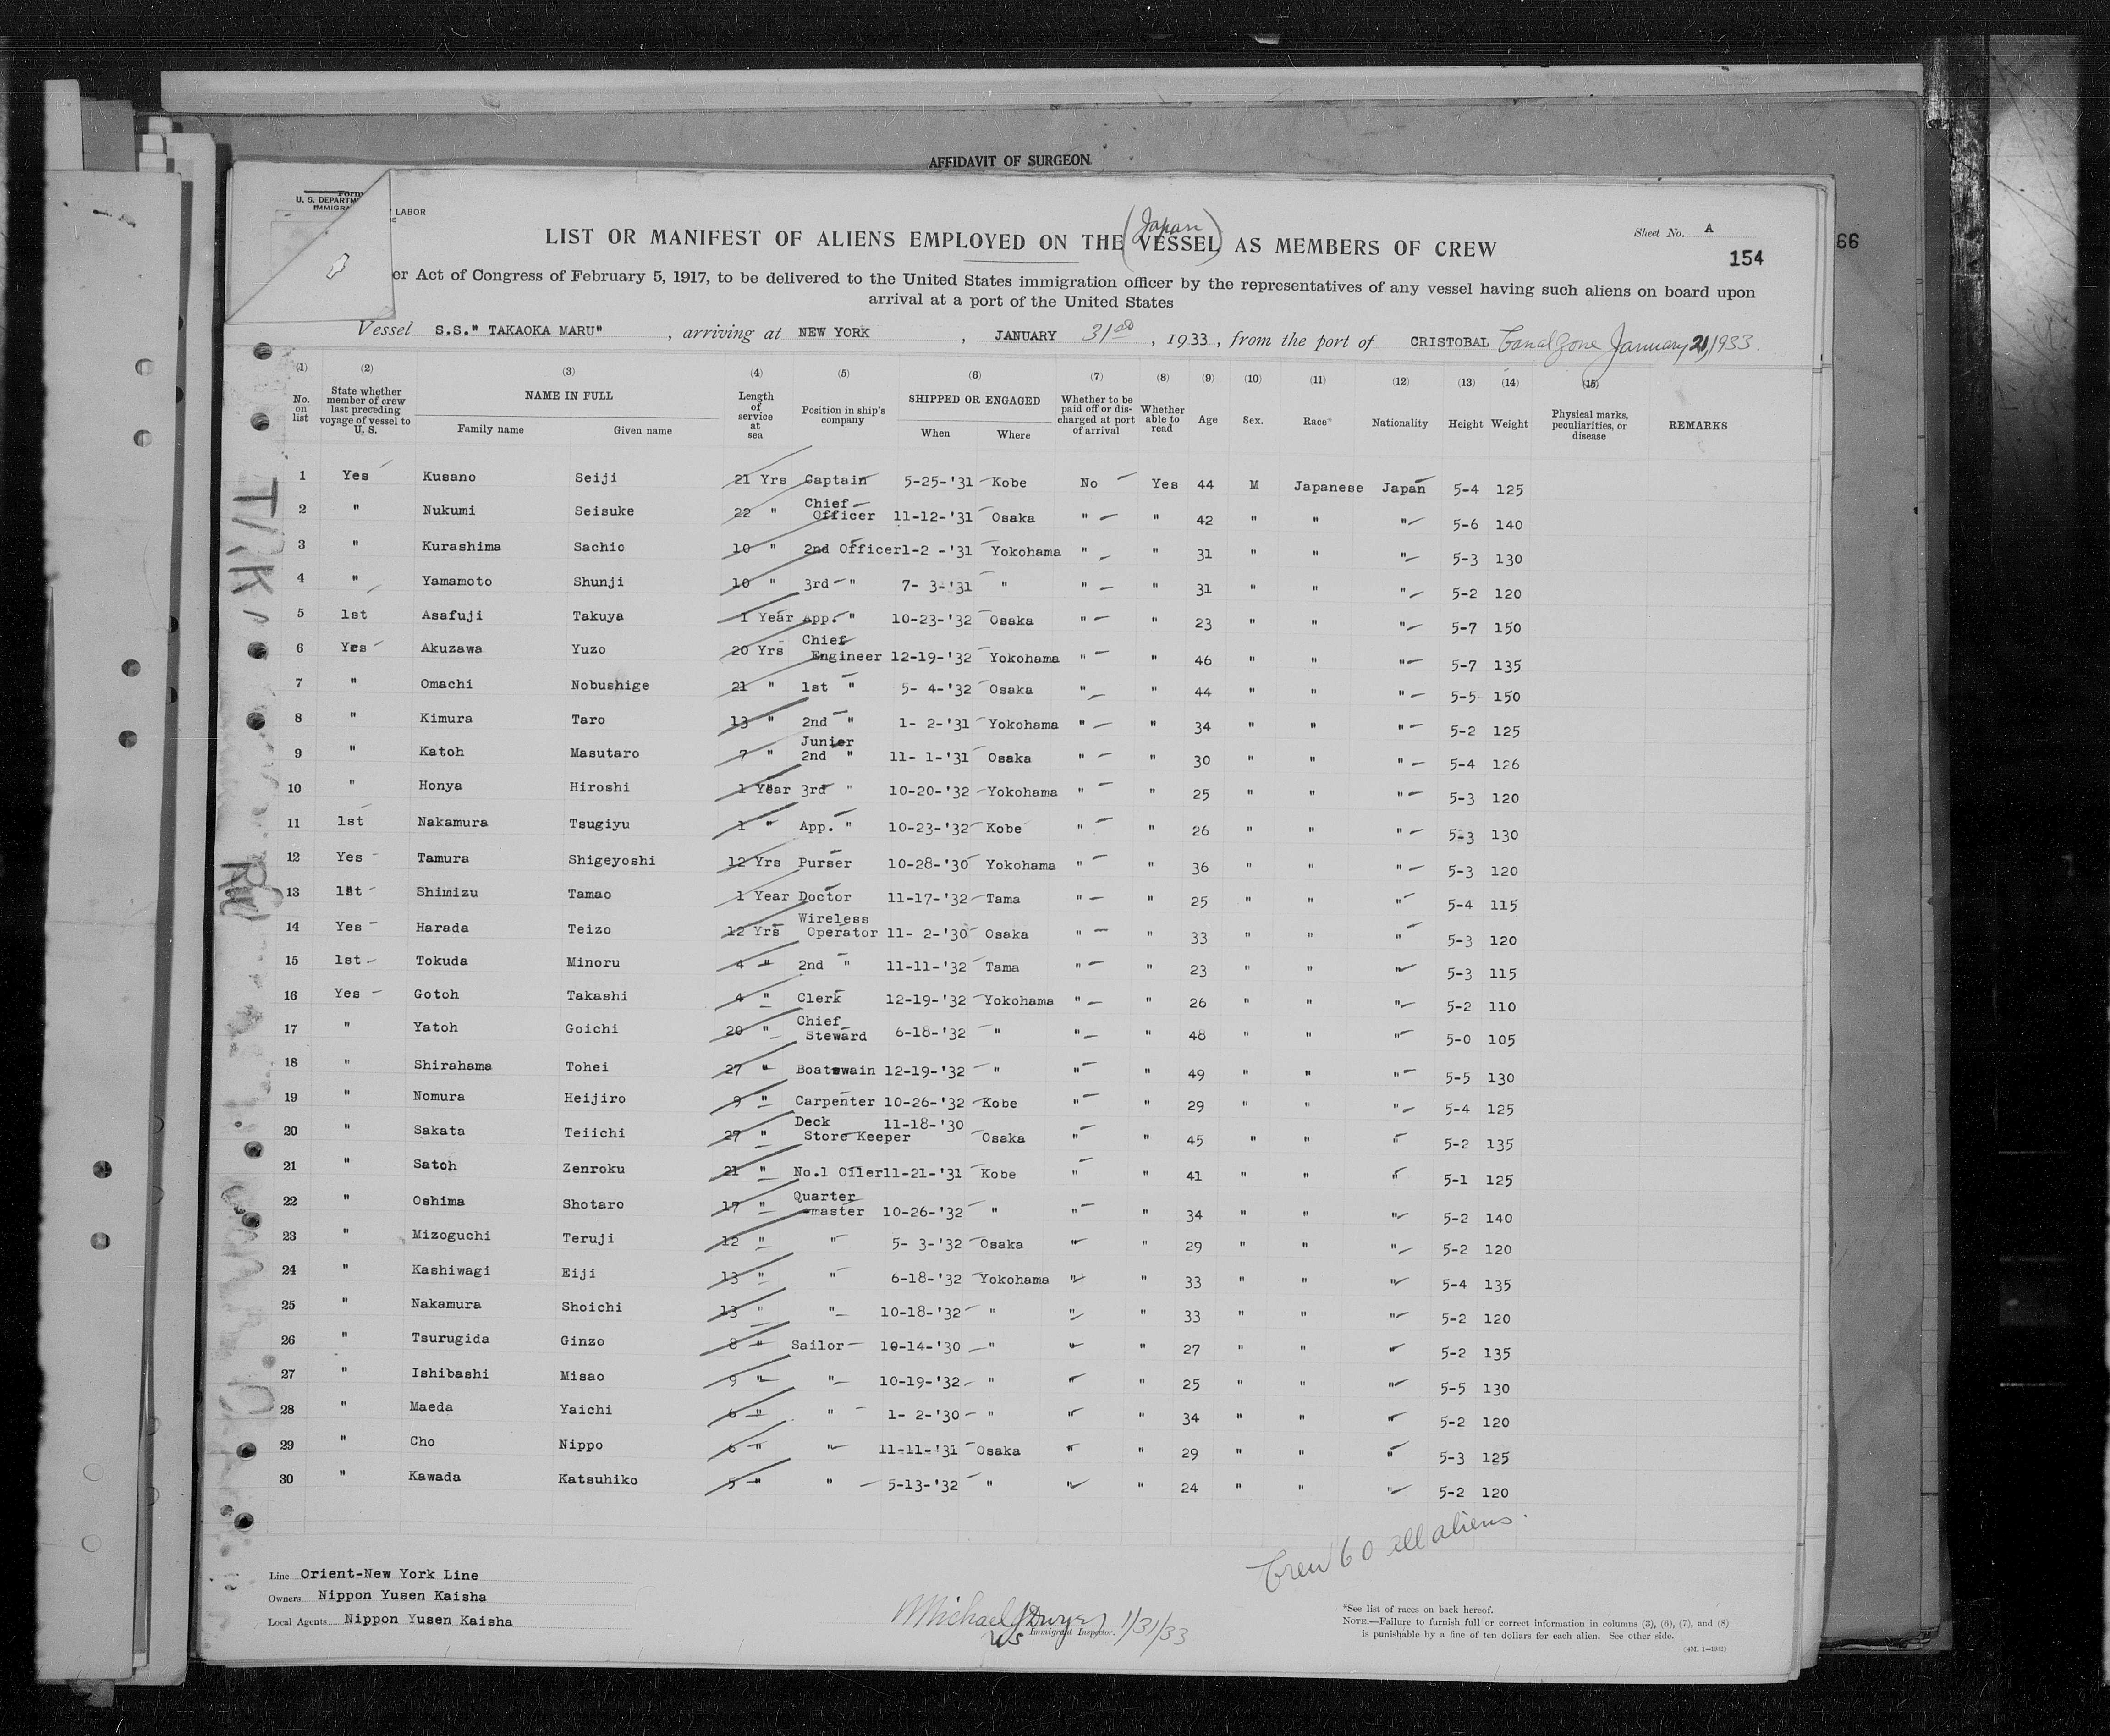 AFFIDAVIT OF SURGEON
Form
U. S. DEPARTM LABOR
IMMIGRA
66
(Japan)
LIST OR MANIFEST OF ALIENS EMPLOYED ON THE VESSEL AS MEMBERS OF CREW
Sheet No. A
154
er Act of Congress of February 5, 1917, to be delivered to the United States immigration officer by the representatives of any vessel having such aliens on board upon
arrival at a port of the United States
Vessel S.S." TAKAOKA MARU" , arriving at NEW YORK , JANUARY 31st , 1933 , from the port of CRISTOBAL Canal Zone January 21, 1933.
(1) (2) (3) (4) (5) (6) (7) (8) (9) (10) (11) (12) (13) (14) (15)
No. on list State whether member of crew last preceding voyage of vessel to U. S. NAME IN FULL Family name Given name Length of service at sea Position in ship's company SHIPPED OR ENGAGED When Where Whether to be paid off or discharged at port of arrival Whether able to read Age Sex. Race* Nationality Height Weight Physical marks, peculiarities, or disease REMARKS
1 Yes Kusano Seiji 21 Yrs Captain 5-25-'31 Kobe No Yes 44 M Japanese Japan 5-4 125
2 " Nukumi Seisuke 22 " Chief Officer 11-12-'31 Osaka " " 42 " " " 5-6 140
3 " Kurashima Sachio 10 " 2nd Officer 1-2 -'31 Yokohama " " 31 " " " 5-3 130
4 " Yamamoto Shunji 10 " 3rd " 7- 3-'31 " " " 31 " " " 5-2 120
5 1st Asafuji Takuya 1 Year App. " 10-23-'32 Osaka " " 23 " " " 5-7 150
6 Yes Akuzawa Yuzo 20 Yrs Chief Engineer 12-19-'32 Yokohama " " 46 " " " 5-7 135
7 " Omachi Nobushige 21 " 1st " 5- 4-'32 Osaka " " 44 " " " 5-5 150
8 " Kimura Taro 13 " 2nd " 1- 2-'31 Yokohama " " 34 " " " 5-2 125
9 " Katoh Masutaro 7 " Junier 2nd " 11- 1-'31 Osaka " " 30 " " " 5-4 126
10 " Honya Hiroshi 1 Year 3rd " 10-20-'32 Yokohama " " 25 " " " 5-3 120
11 1st Nakamura Tsugiyu 1 " App. " 10-23-'32 Kobe " " 26 " " " 5-3 130
12 Yes Tamura Shigeyoshi 12 Yrs Purser 10-28-'30 Yokohama " " 36 " " " 5-3 120
13 1st Shimizu Tamao 1 Year Doctor 11-17-'32 Tama " " 25 " " " 5-4 115
14 Yes Harada Teizo 12 Yrs Wireless Operator 11- 2-'30 Osaka " " 33 " " " 5-3 120
15 1st Tokuda Minoru 4 " 2nd " 11-11-'32 Tama " " 23 " " " 5-3 115
16 Yes Gotoh Takashi 4 " Clerk 12-19-'32 Yokohama " " 26 " " " 5-2 110
17 " Yatoh Goichi 20 " Chief Steward 6-18-'32 " " " 48 " " " 5-0 105
18 " Shirahama Tohei 27 " Boatswain 12-19-'32 " " " 49 " " " 5-5 130
19 " Nomura Heijiro 9 " Carpenter 10-26-'32 Kobe " " 29 " " " 5-4 125
20 " Sakata Teiichi 27 " Deck Store Keeper 11-18-'30 Osaka " " 45 " " " 5-2 135
21 " Satoh Zenroku 21 " No.1 Oiler 11-21-'31 Kobe " " 41 " " " 5-1 125
22 " Oshima Shotaro 17 " Quarter -master 10-26-'32 " " " 34 " " " 5-2 140
23 " Mizoguchi Teruji 12 " " 5- 3-'32 Osaka " " 29 " " " 5-2 120
24 " Kashiwagi Eiji 13 " " 6-18-'32 Yokohama " " 33 " " " 5-4 135
25 " Nakamura Shoichi 13 " " 10-18-'32 " " " 33 " " " 5-2 120
26 " Tsurugida Ginzo 8 " Sailor 10-14-'30 " " " 27 " " " 5-2 135
27 " Ishibashi Misao 9 " " 10-19-'32 " " " 25 " " " 5-5 130
28 " Maeda Yaichi 6 " " 1- 2-'30 " " " 34 " " " 5-2 120
29 " Cho Nippo 6 " " 11-11-'31 Osaka " " 29 " " " 5-3 125
30 " Kawada Katsuhiko 5 " " 5-13-'32 " " " 24 " " " 5-2 120
Crew 60 all aliens.
Line Orient-New York Line
Owners Nippon Yusen Kaisha
Local Agents Nippon Yusen Kaisha
Michael J Dwyer 1/31/33
US Immigrant Inspector.
*See list of races on back hereof.
NOTE.—Failure to furnish full or correct information in columns (3), (6), (7), and (8)
is punishable by a fine of ten dollars for each alien. See other side.